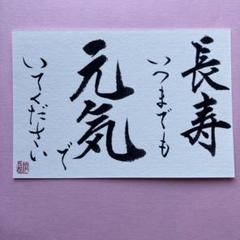 長寿
いつまでも
元気で
いてください